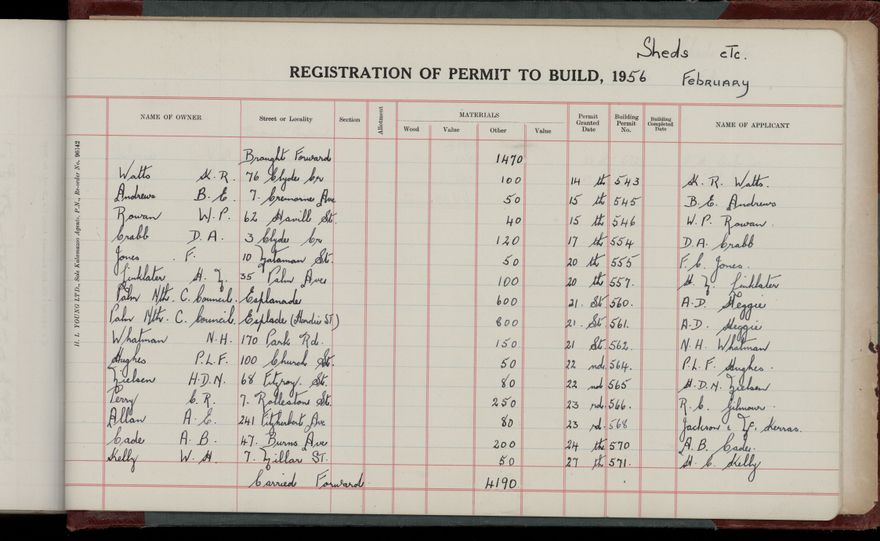 Sheds etc.
REGISTRATION OF PERMIT TO BUILD, 1956 February
NAME OF OWNER Street or Locality Section Allotment MATERIALS Permit Granted Date Building Permit No. Building Completed Date NAME OF APPLICANT
Wood Value Other Value
Brought Forward 1470
Watts K. R. 76 Clyde Cr 100 14 th 543 K. R. Watts.
Andrews B. E. 7. Cremorne Ave 50 15 th 545 B. E. Andrews
Rowan W. P. 62 Savill St. 40 15 th 546 W. P. Rowan.
Crabb D. A. 3 Clyde Cr 120 17 th 554 D. A. Crabb
Jones . F. 10 St. 50 20 th 555 F. C. Jones.
Linklater 35 Palm Ave 100 20 th 557. Linklater
Palm Nth. C. Council. Esplanade 600 21. St. 560. A. D. Heggie
Palm Nth. C. Council. Esplade ( ST.) 800 21. St. 561. A. D. Heggie
Whatman N. H. 170 Park Rd. 150 21 St. 562. N. H. Whatman
Hughes P. L. F. 100 Church St. 50 22 nd. 564. P. L. F. Hughes.
Nielsen H. D. N. 68 Fitzroy. St. 80 22 nd 565 H. D. N. Nielsen
Perry C. R. 7. Rolleston St. 250 23 rd. 566. R. C. Gilmour.
Allan A. C. 241 Fitzherbert Ave 80 23 rd. 568 Jackson
Cade A. B. 47. Burns Ave 200 24 th 570 A. B. Cade.
Kelly W. H. 7. ST. 50 27 th 571. Kelly
Carried Forward 4190
H. L. YOUNG LTD., Sole Kalamazoo Agents, P.N., Re-order No. 96142